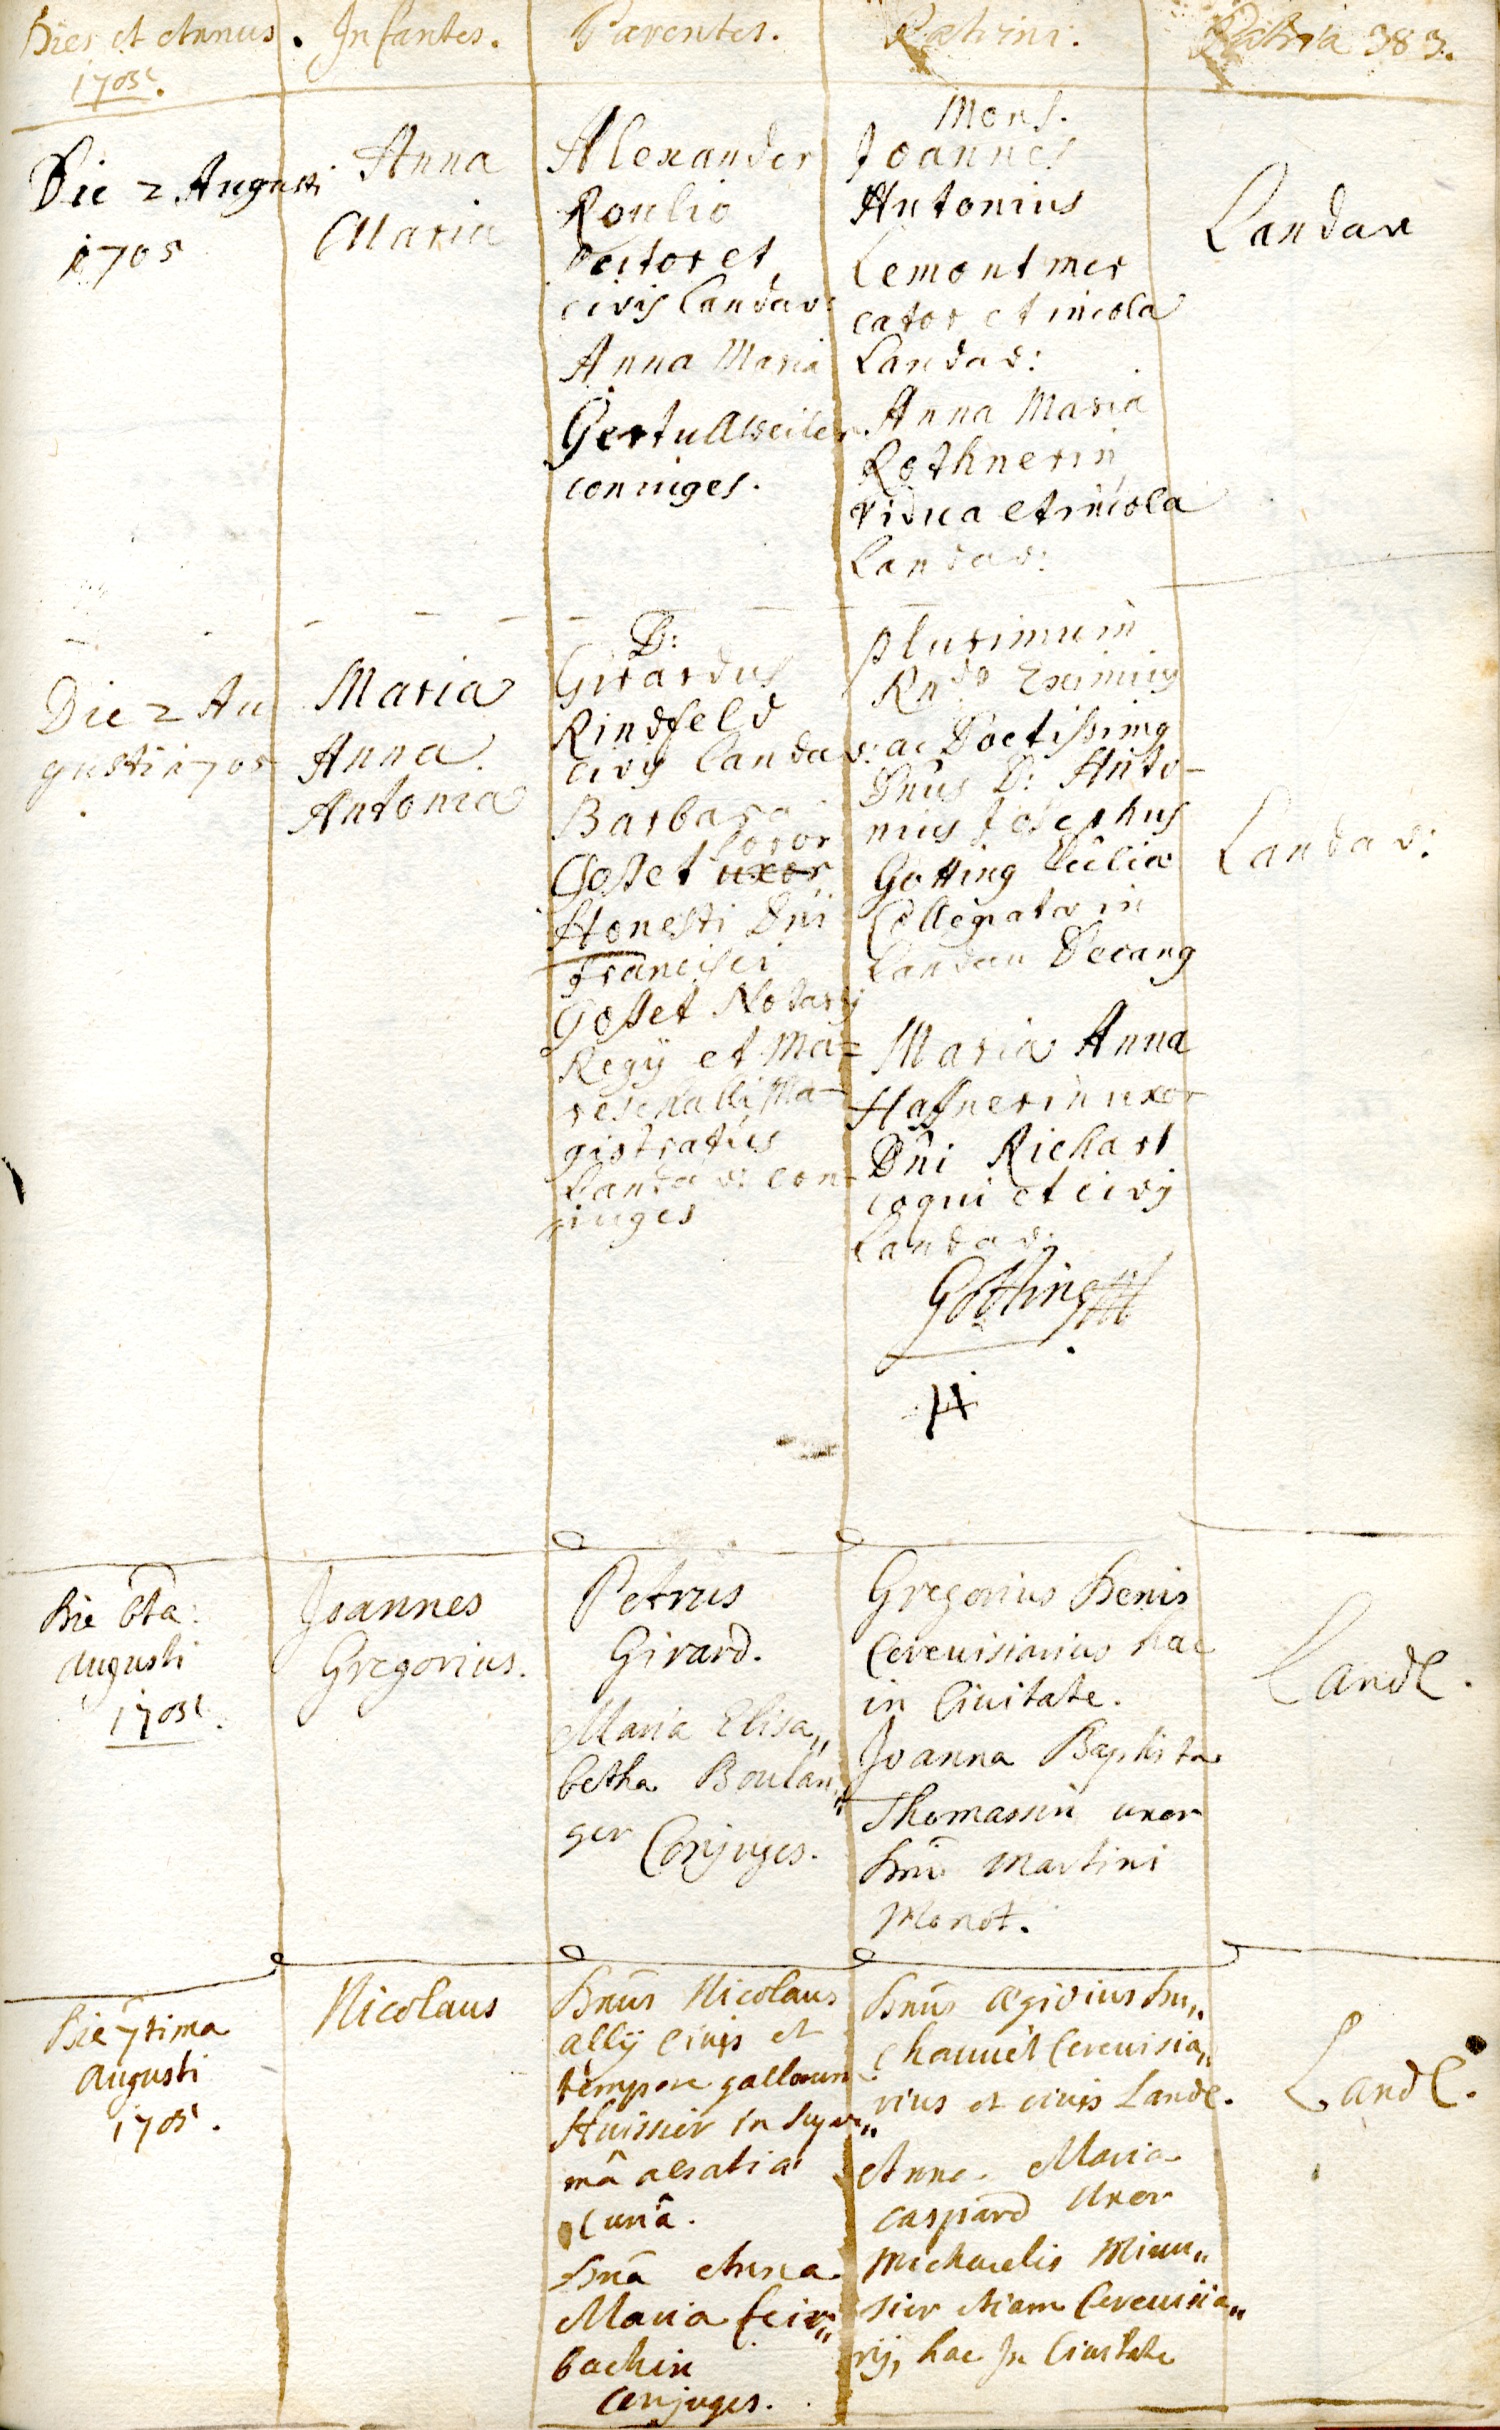 Dies et Annus. Infantes. Parentes. Patrini. Patria 383.
1705.
Die 2 Augusti
1705
Anna
Maria
Alexander
Roulio
et
civis Landav:
Anna Maria
Gertullweiler
coniuges.
Mons.
Joannes
Antonius
Lemont mer
cator et incola
Landav:
Anna Maria
Rothnerin
vidua et incola
Landav:
Landau
Die 2 Au
gusti 1705
Maria
Anna
Antonia
D:
Girardus
Rindfeld
civis Landav:
Barbara
soror
Gosset uxor
Honesti Dni
Francisci
Gosset Notarij
Regij et Ma=
reschalli Ma-
gistratus
Landav: con-
iuges
plurimum
Rndo Eximius
ac Doctissimus
Dnus D: Anto-
nius Josephus
Götting
Collegiatae in
Landau Decanus
Maria Anna
Hafnerin uxor
Dni Richart
coqui et civis
Landav:
Götting
Landav:
Die 6ta:
Augusti
1705.
Joannes
Gregorius.
Petrus
Girard.
Maria Elisa„
betha Boulan„
ger Conjuges.
Gregorius Henis
Cerevisiarius hac
in Civitate.
Joanna Baptista
Thomassin uxor
Dni Martini
Monot.
Land.
Die 7tima
Augusti
1705.
Nicolaus
Dnus Nicolaus
ally civis et
tempore gallorum
Huissier in supre„
mâ alsatiae
Curiâ.
Dna Anna
Maria Leir„
bachin
Conjuges.
Dnus Ægidius Du„
chauuét Cerevisia„
rius et civis Land.
Anna Maria
Caspard Uxor
Michaelis Miun„
sier etiam Cerevisia„
rij, hac In Civitate
Land.